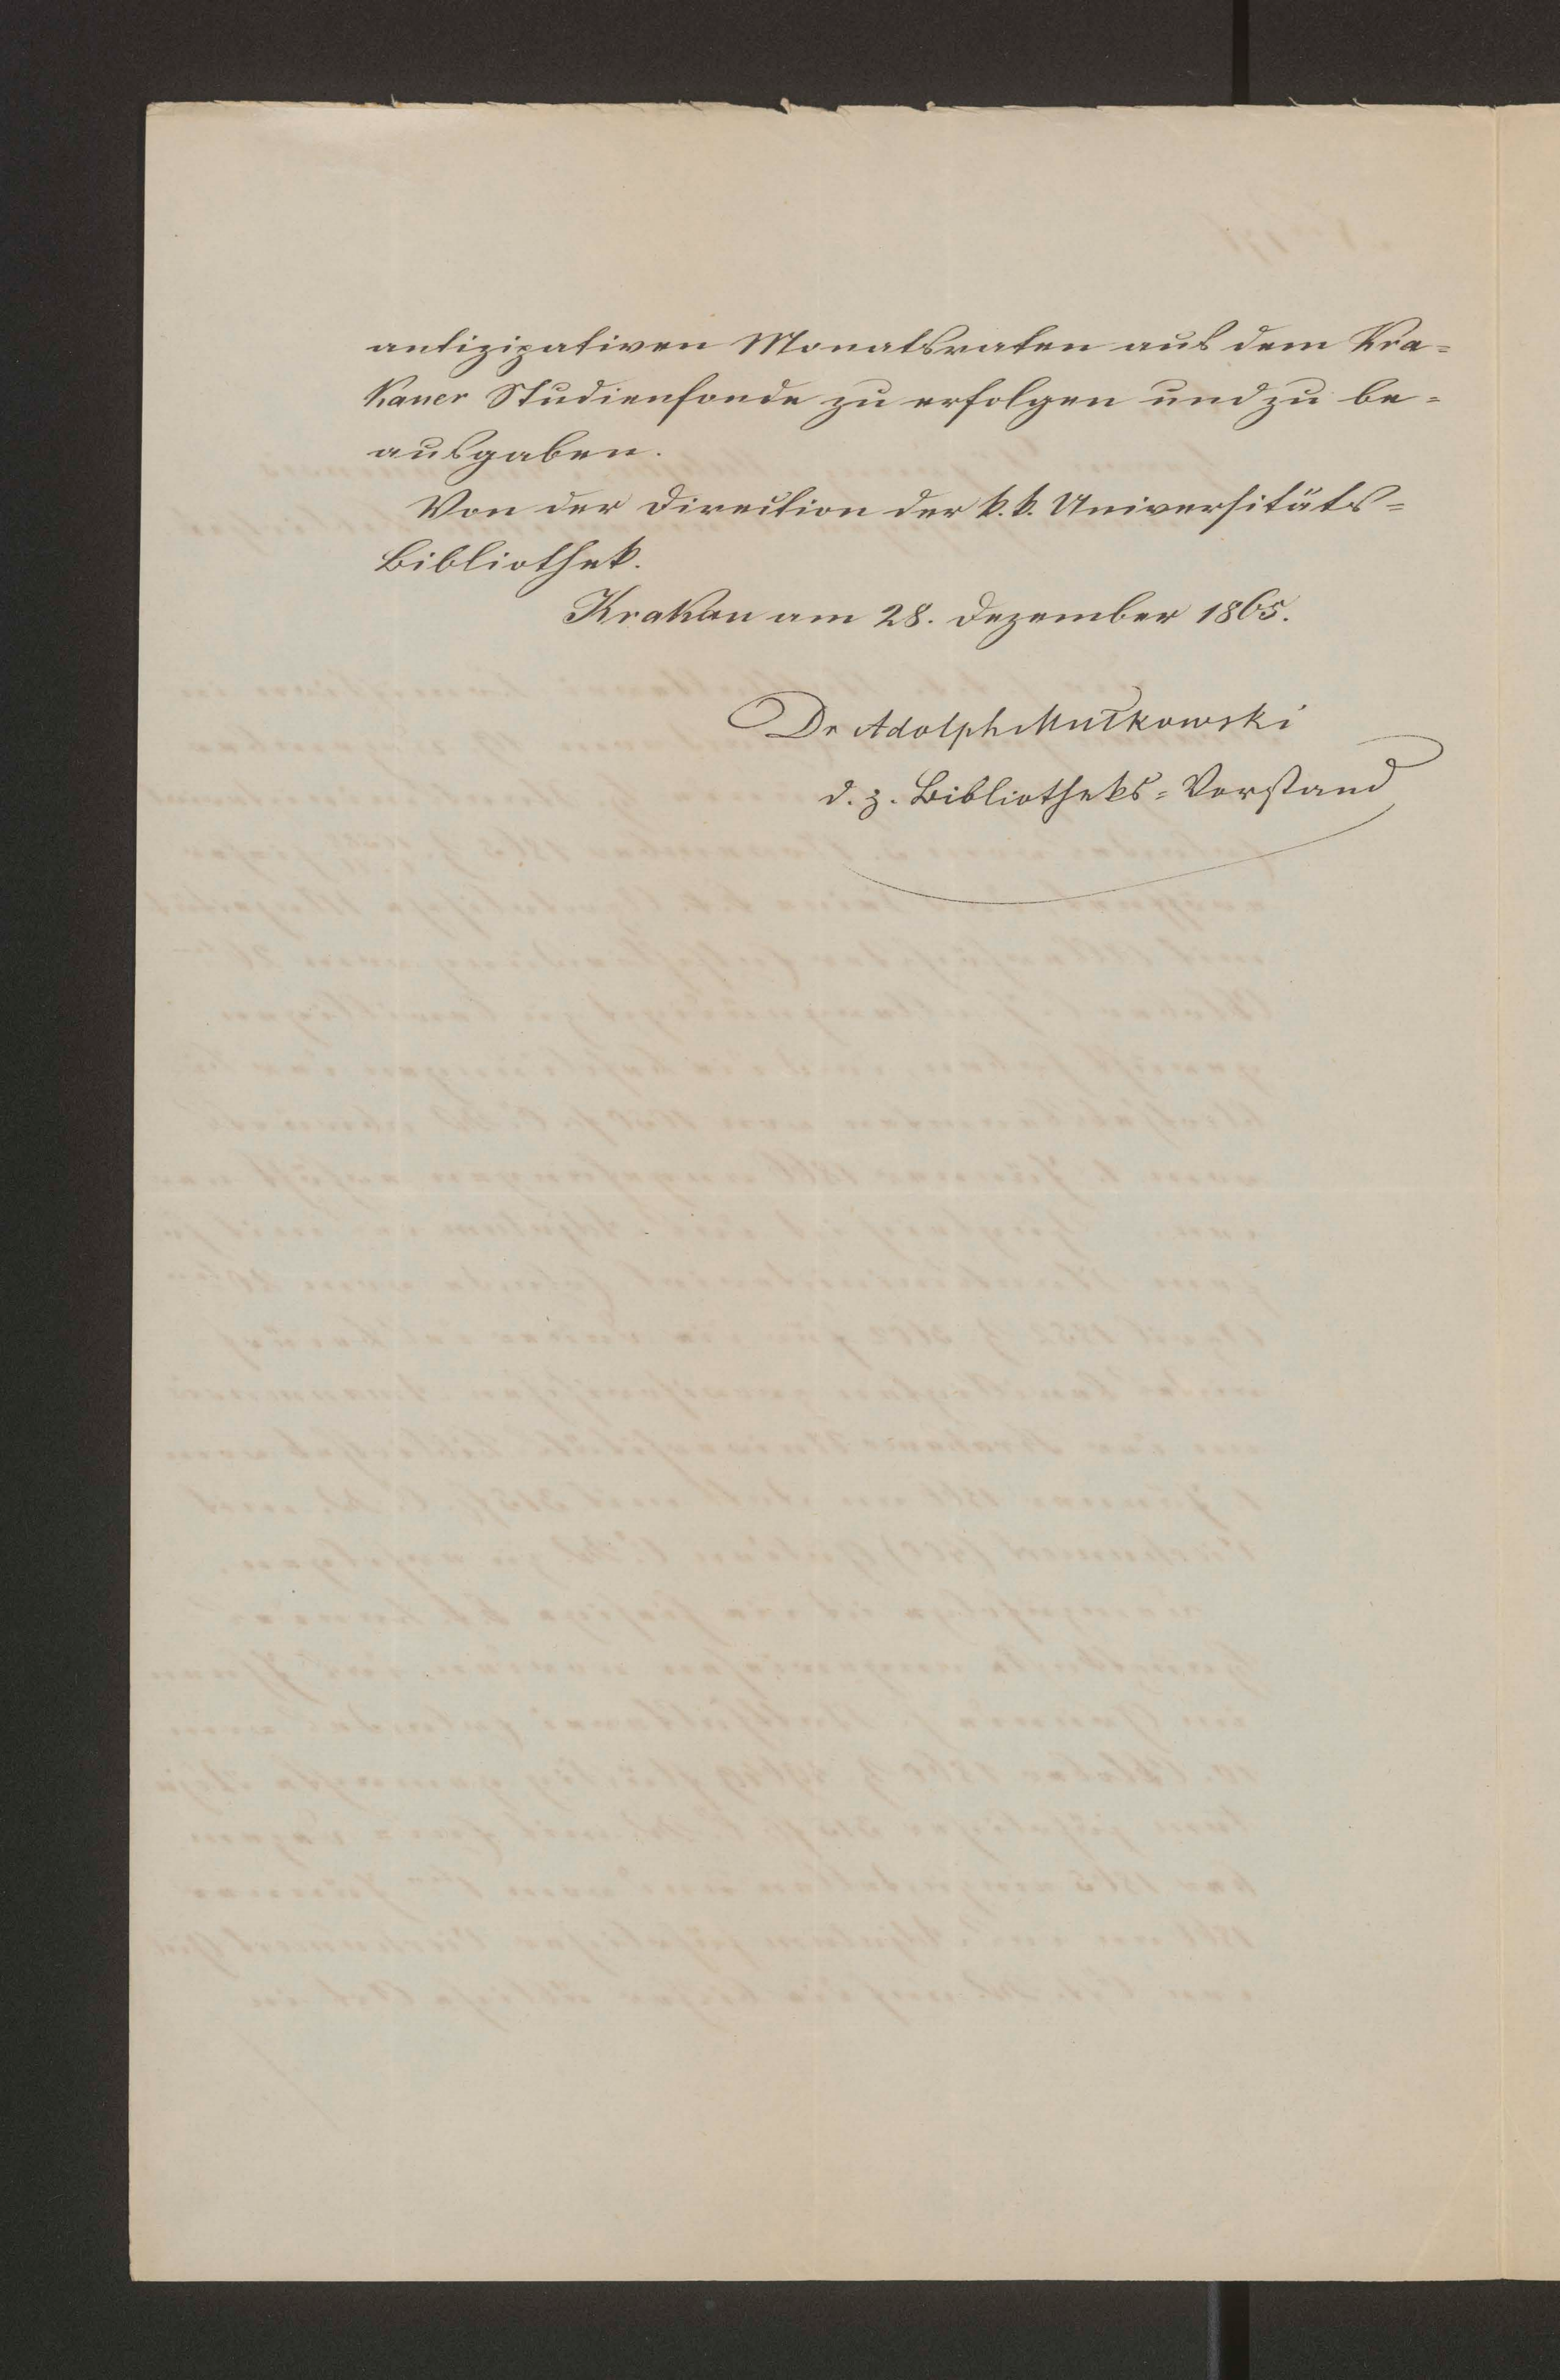 antizipativen Monatsraten aus dem Kra-
kauer Studienfonde zu erfolgen und zu be-
ausgaben.
Von der Direction der k. k. Universitäts-
Bibliothek.
Krakau am 28. Dezember 1865.
Dr Adolph Mułkowski
d. z. Bibliotheks-Vorstand